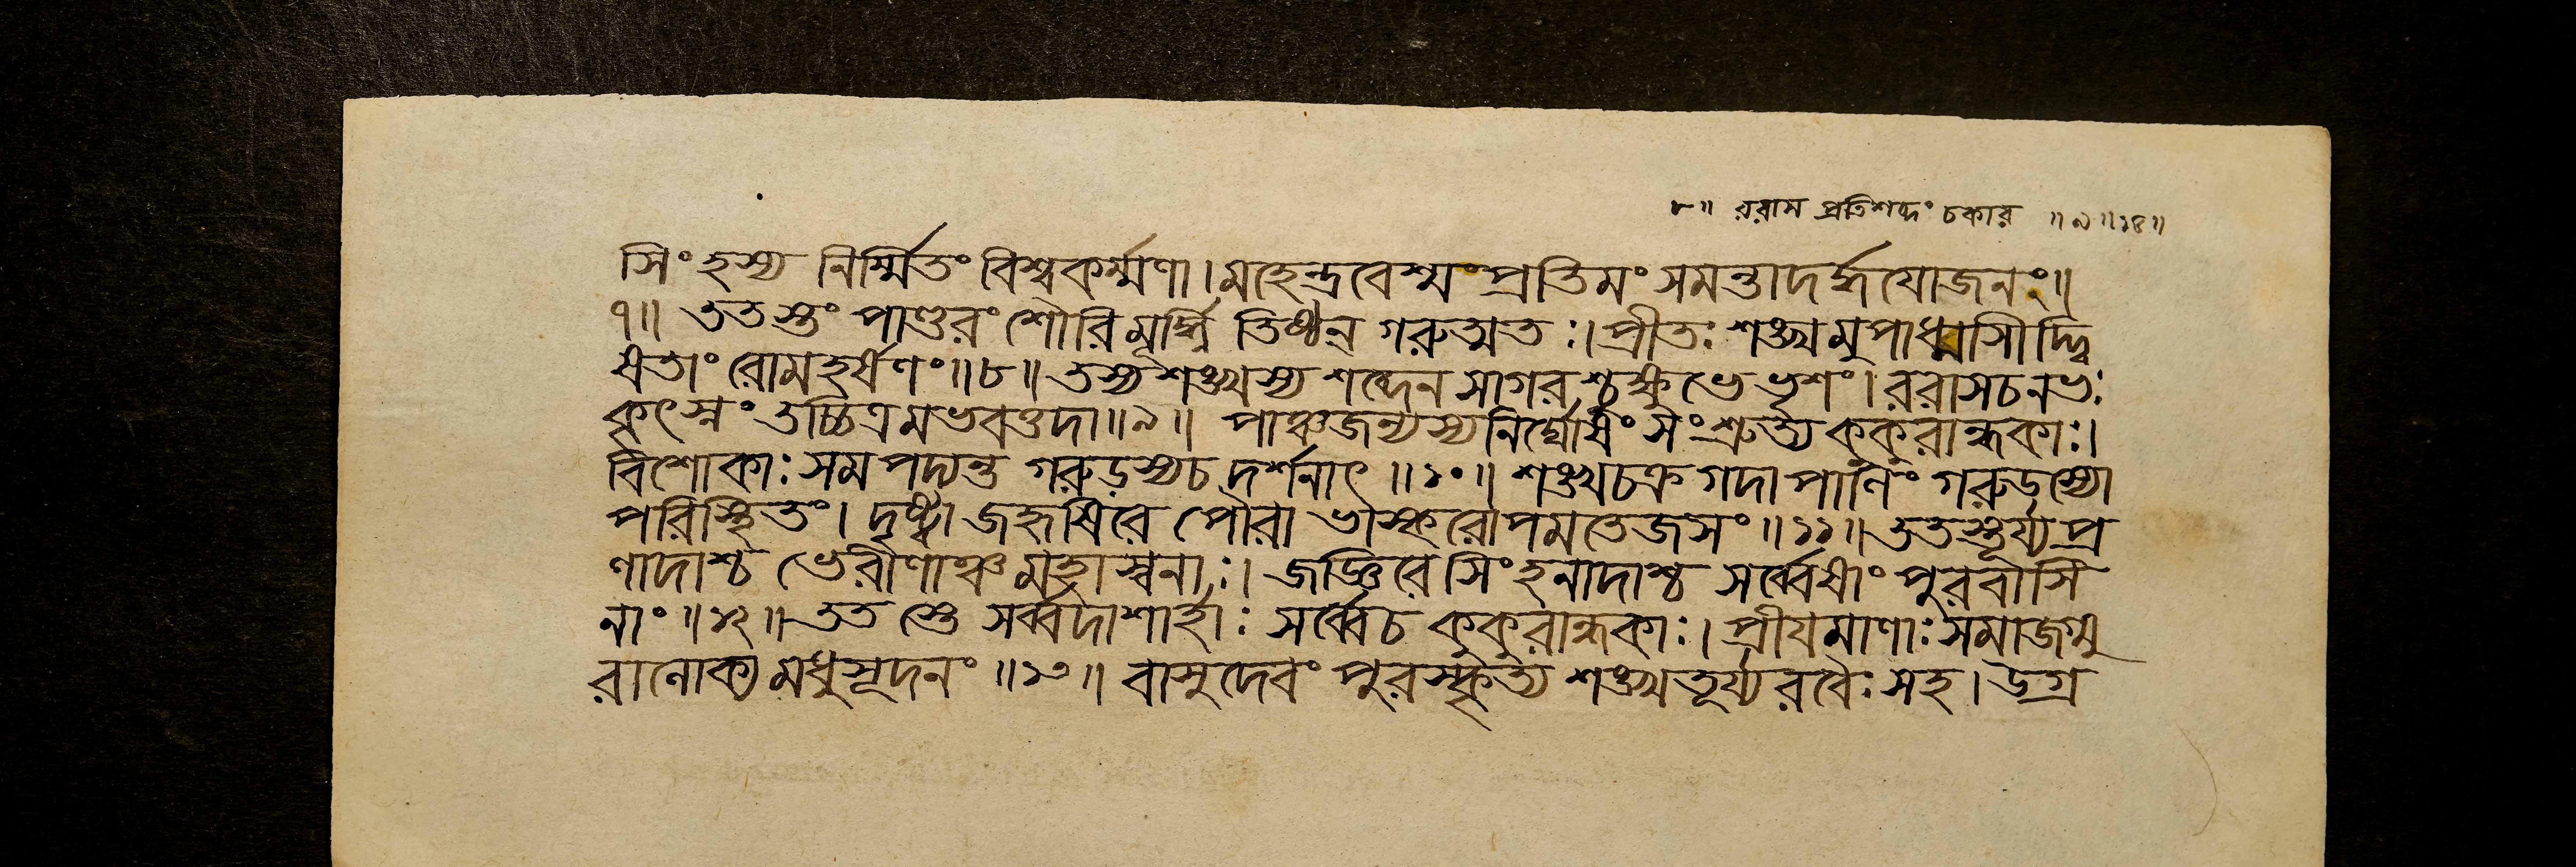 ৮॥ ররাস প্রতিশব্দং চকার ॥৯॥১৪॥
সিংহস্য নির্ম্মিতং বিশ্বকর্ম্মণা। মহেন্দ্রবেশ্মং প্রতিমং সমন্তাদর্দ্ধযোজনং॥
৭॥ ততস্তং পাণ্ডরং শৌরি মূর্দ্ধ্নি তিষ্ঠন্ গরুত্মতঃ। প্রীতঃ শঙ্খমুপাধ্মাসীদ্দ্বি
ষতাং রোমহর্ষণং॥৮॥ তস্য শঙ্খস্য শব্দেন সাগরশ্চক্ষুভে ভৃশং। ররাস চ নভঃ
কৃৎস্নং তচ্চিত্রমভবত্তদা॥৯॥ পাঞ্চজন্যস্য নির্ঘোষং সংশ্রুত্য কুকুরান্ধকাঃ।
বিশোকাঃ সমপদ্যন্ত গরুড়স্য চ দর্শনাৎ॥১০॥ শঙ্খচক্রগদাপাণিং গরুডস্যো
পরিস্থিতং। দৃষ্ট্বা জহৃষিরে পৌরা ভাস্করোপমতেজসং॥১১॥ ততস্তূর্য্যপ্র
ণাদাশ্চ ভেরীণাঞ্চ মহাস্বনাঃ। জজ্ঞিরে সিংহনাদাশ্চ সর্ব্বেষাং পুরবাসি
নাং॥১২॥ ততস্তে সর্ব্বদাশার্হাঃ সর্ব্বে চ কুকুরান্ধকাঃ। প্রীয়মাণাঃ সমাজগ্মু
রালোক্য মধুসূদনং॥১৩॥ বাসুদেবং পুরস্কৃত্য শঙ্খতূর্য্যরবৈঃ সহ। উগ্র